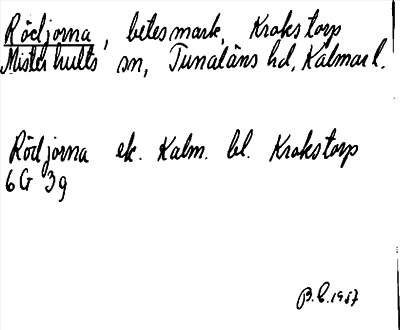 Rödjorna, betesmark, Krokstorp
Misterhults sn, Tunaläns hd, Kalmar l.
Rödjorna ek. Kalm. bl. Krokstorp
6G 3g
B.E. 1957